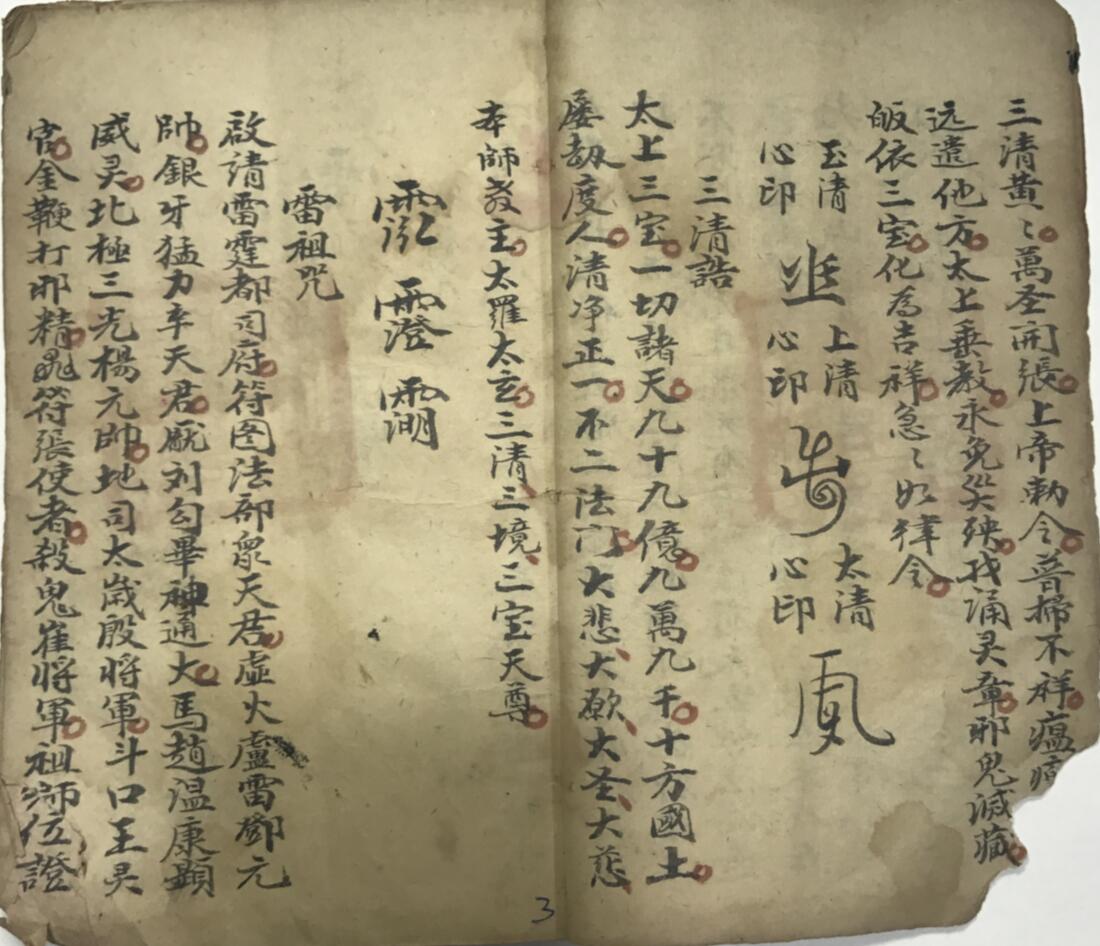 三清黄〻萬圣開張上帝勅令普掃不祥瘟
远遣他方太上垂教永免災殃我誦灵章邪鬼滅藏
皈依三宝化為吉祥急〻如律令
玉清心印
上清心印
太清心印
三清誥
太上三宝一切諸天九十九億九萬九千十方國土
屡劫度人清净正一不二法门大悲大愿大圣大慈
本師教主太羅太玄三清三境三宝天尊
雷祖咒
啟請雷霆都司府符图法部眾天君虛火盧雷鄧元
帥銀牙猛力辛天君厭刘勾畢神通大馬趙溫康顯
威灵北極三光楊元帥地司太歲殷將軍斗口王灵
官金鞭打邪精飛符張使者殺鬼崔將軍祖師位證